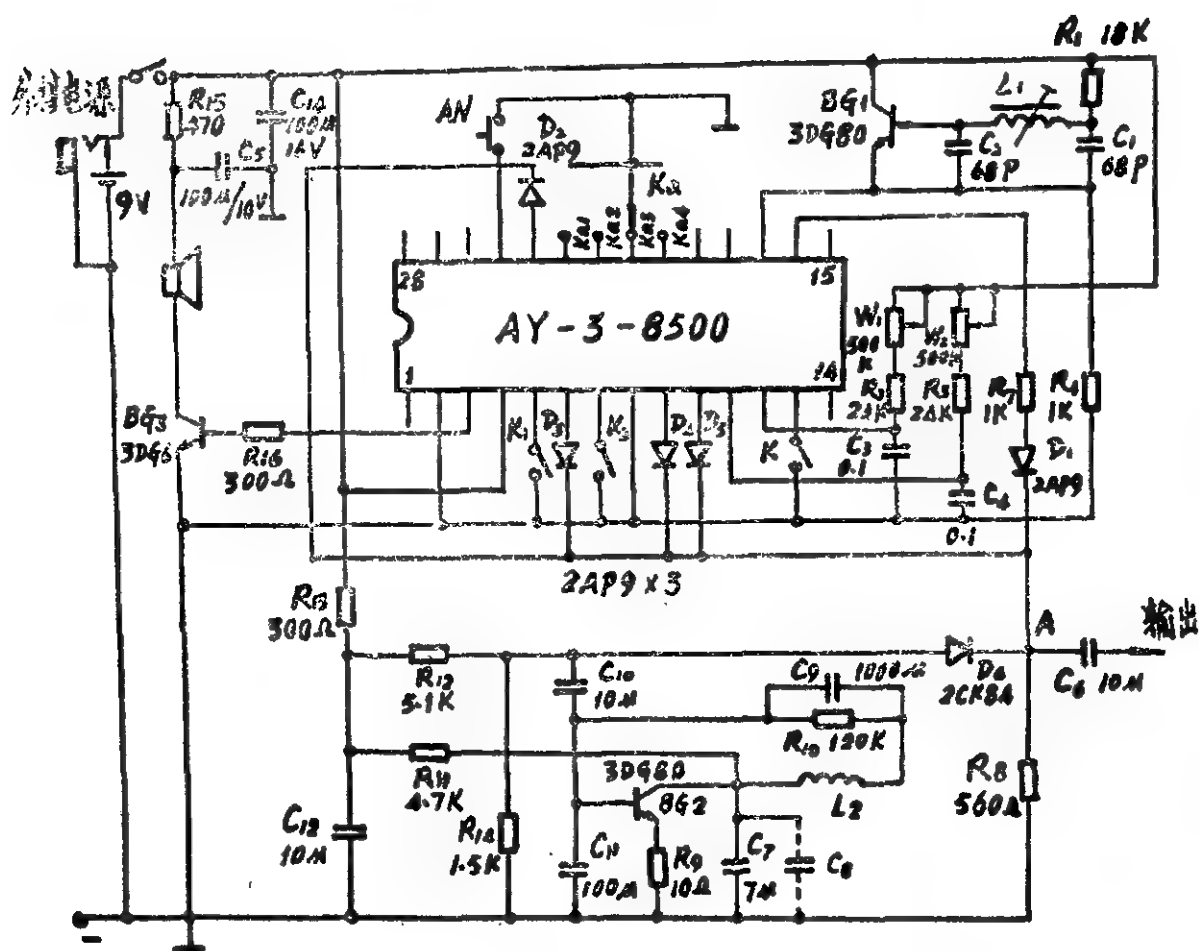 外接电源
R15
470
C14
100μ
16V
C5
100μ/10V
9V
AN
D2
2AP9
Ka
Ka1
Ka2
Ka3
Ka4
BG1
3DG80
R1 18K
L1
C2
68P
C1
68P
28
15
AY-3-8500
1
14
W1
500
K
W2
500K
R2
24K
R3
24K
R7
1K
R4
1K
C3
0.1
D1
2AP9
C4
0.1
BG3
3DG6
R16
300Ω
K1
D3
K2
D4
D5
K
2AP9×3
R13
300Ω
A
输出
R12
5.1K
C10
10μ
C9
1000μ
D6
2CK84
C6 10μ
R10 120K
R11
4.7K
3DG80
BG2
L2
R8
560Ω
C12
10μ
R14
1.5K
C11
100μ
R9
10Ω
C7
7μ
C8
-